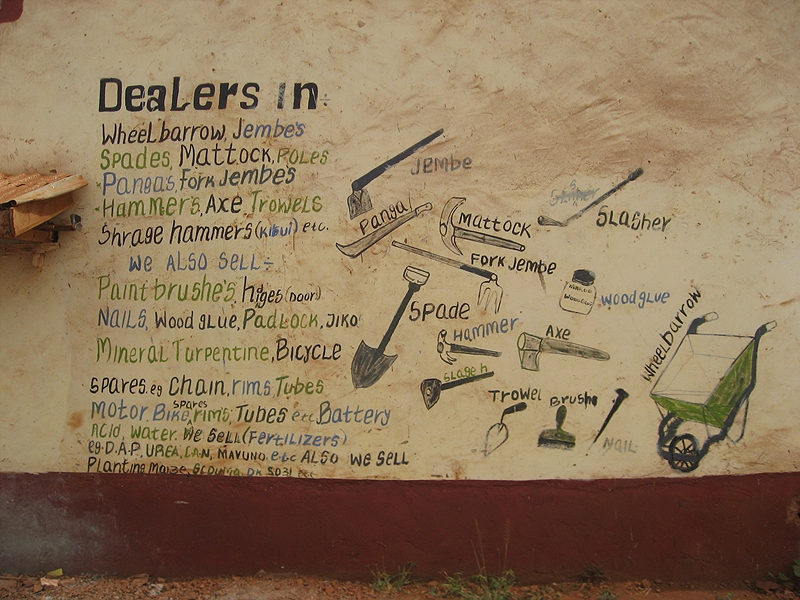 Dealers in:-
Wheelbarrow, Jembe's
Spades, Mattock, Poles
Pangas, Fork Jembes
Hammer's, Axe, Trowels
Shrage hammers (kikui) etc.
We ALSO SELL:-
Paint brushe's, higes (Door)
NAILS, Wood glue, PadLock, JIKO
Mineral Turpentine, Bicycle
SPARES. eg Chain, rims Tubes
Motor Bike spares, rims, Tubes etc Battery
Acid, Water. We Sell (Fertilizers)
eg. D.A.P, UREA, CAN, MAVUNO etc ALSO We SELL
Planting Maize, DK 8031 etc
JEMBE
Panga
Mattock
Slasher
Fork Jembe
WOOD GLUE
Woodglue
Spade
Hammer
Axe
Slage h
Trowel
Brushe
NAIL
Wheelbarrow